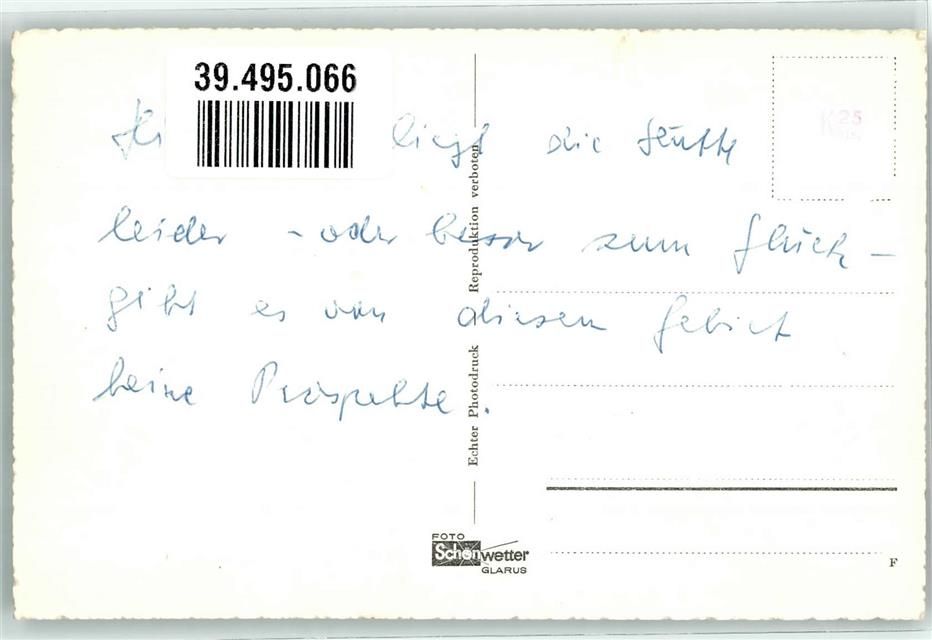 39.495.066
liegt die Hütte
leider - oder besser zum Glück -
gibt es von diesem Gebiet
keine Prospekte.
Echter Photodruck Reproduktion verboten
FOTO
Schönwetter
GLARUS
F